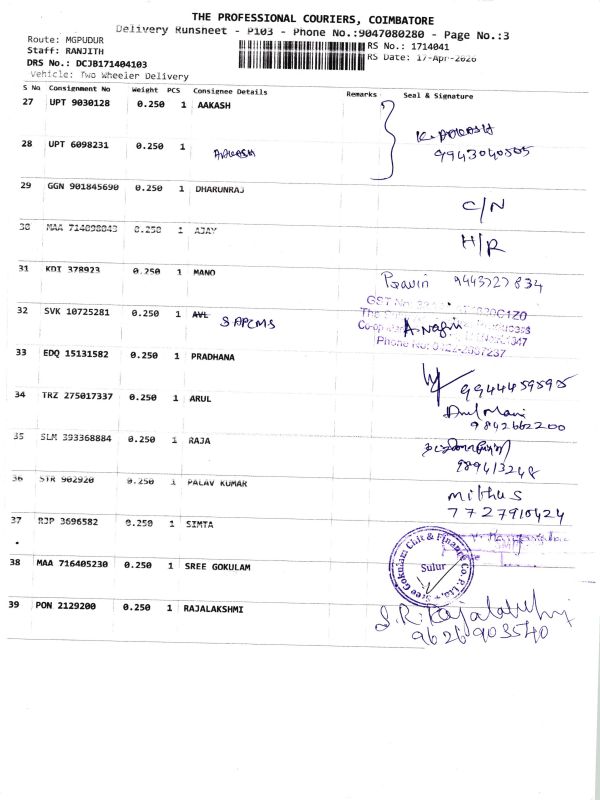 THE PROFESSIONAL COURIERS, COIMBATORE
Delivery Runsheet - P103 - Phone No.:9047080280 - Page No.:3
Route: MGPUDUR
Staff: RANJITH
DRS No.: DCJB171404103
Vehicle: Two Wheeler Delivery
RS No.: 1714041
RS Date: 17-Apr-2026
S No Consignment No Weight PCS Consignee Details Remarks Seal & Signature
27 UPT 9030128 0.250 1 AAKASH
K. AAKASH
28 UPT 6098231 0.250 1 AAKASH
9943040505
29 GGN 901845690 0.250 1 DHARUNRAJ C/N
30 MAA 714898043 0.250 1 AJAY H/R
31 KDI 378923 0.250 1 MANO Pravin 9443727834
32 SVK 10725281 0.250 1 AVL SAPCMS
GST No.
Phone No:
33 EDQ 15131582 0.250 1 PRADHANA 9944459595
34 TRZ 275017337 0.250 1 ARUL Arul Mani
9842662200
35 SLM 393368884 0.250 1 RAJA
989413248
36 STR 902920 0.250 1 PALAV KUMAR Mithus
7727910424
37 RJP 3696582 0.250 1 SIMTA
38 MAA 716405230 0.250 1 SREE GOKULAM
Sree Gokulam Chit & Finance Co. P. Ltd.
Sulur
39 PON 2129200 0.250 1 RAJALAKSHMI S.R. Rajalakshmi
9626903540